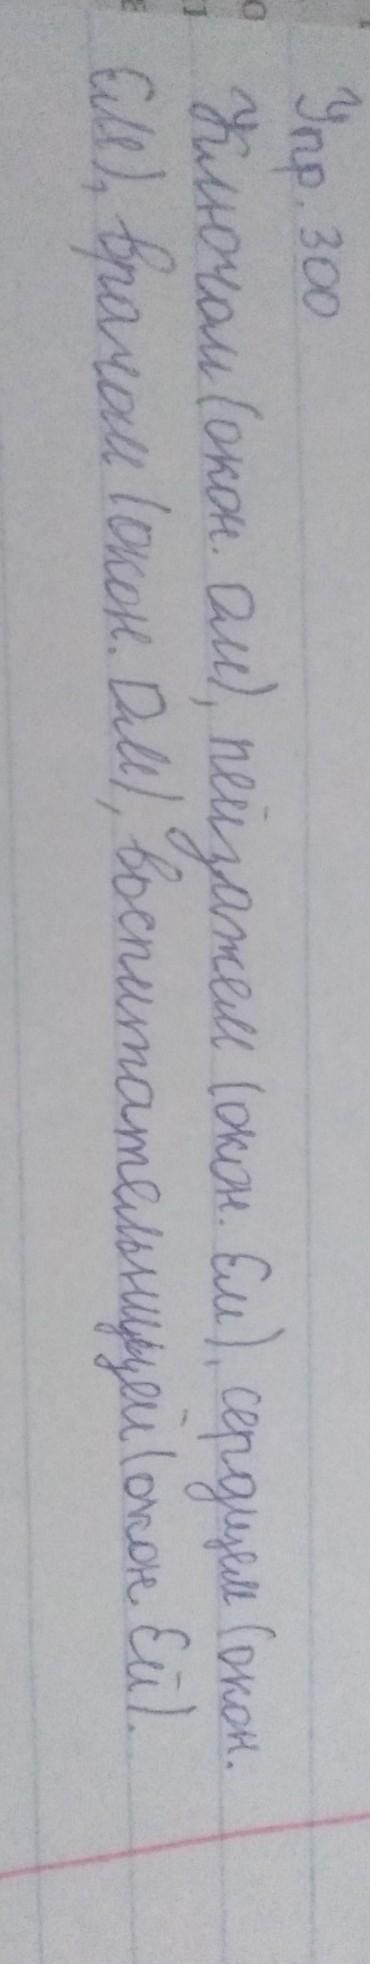 Упр. 300
Ключом (окон. Ом), пейзажем (окон. Ем), сердцем (окон.
Ем), врачом (окон. Ом), воспитательницей (окон Ей).